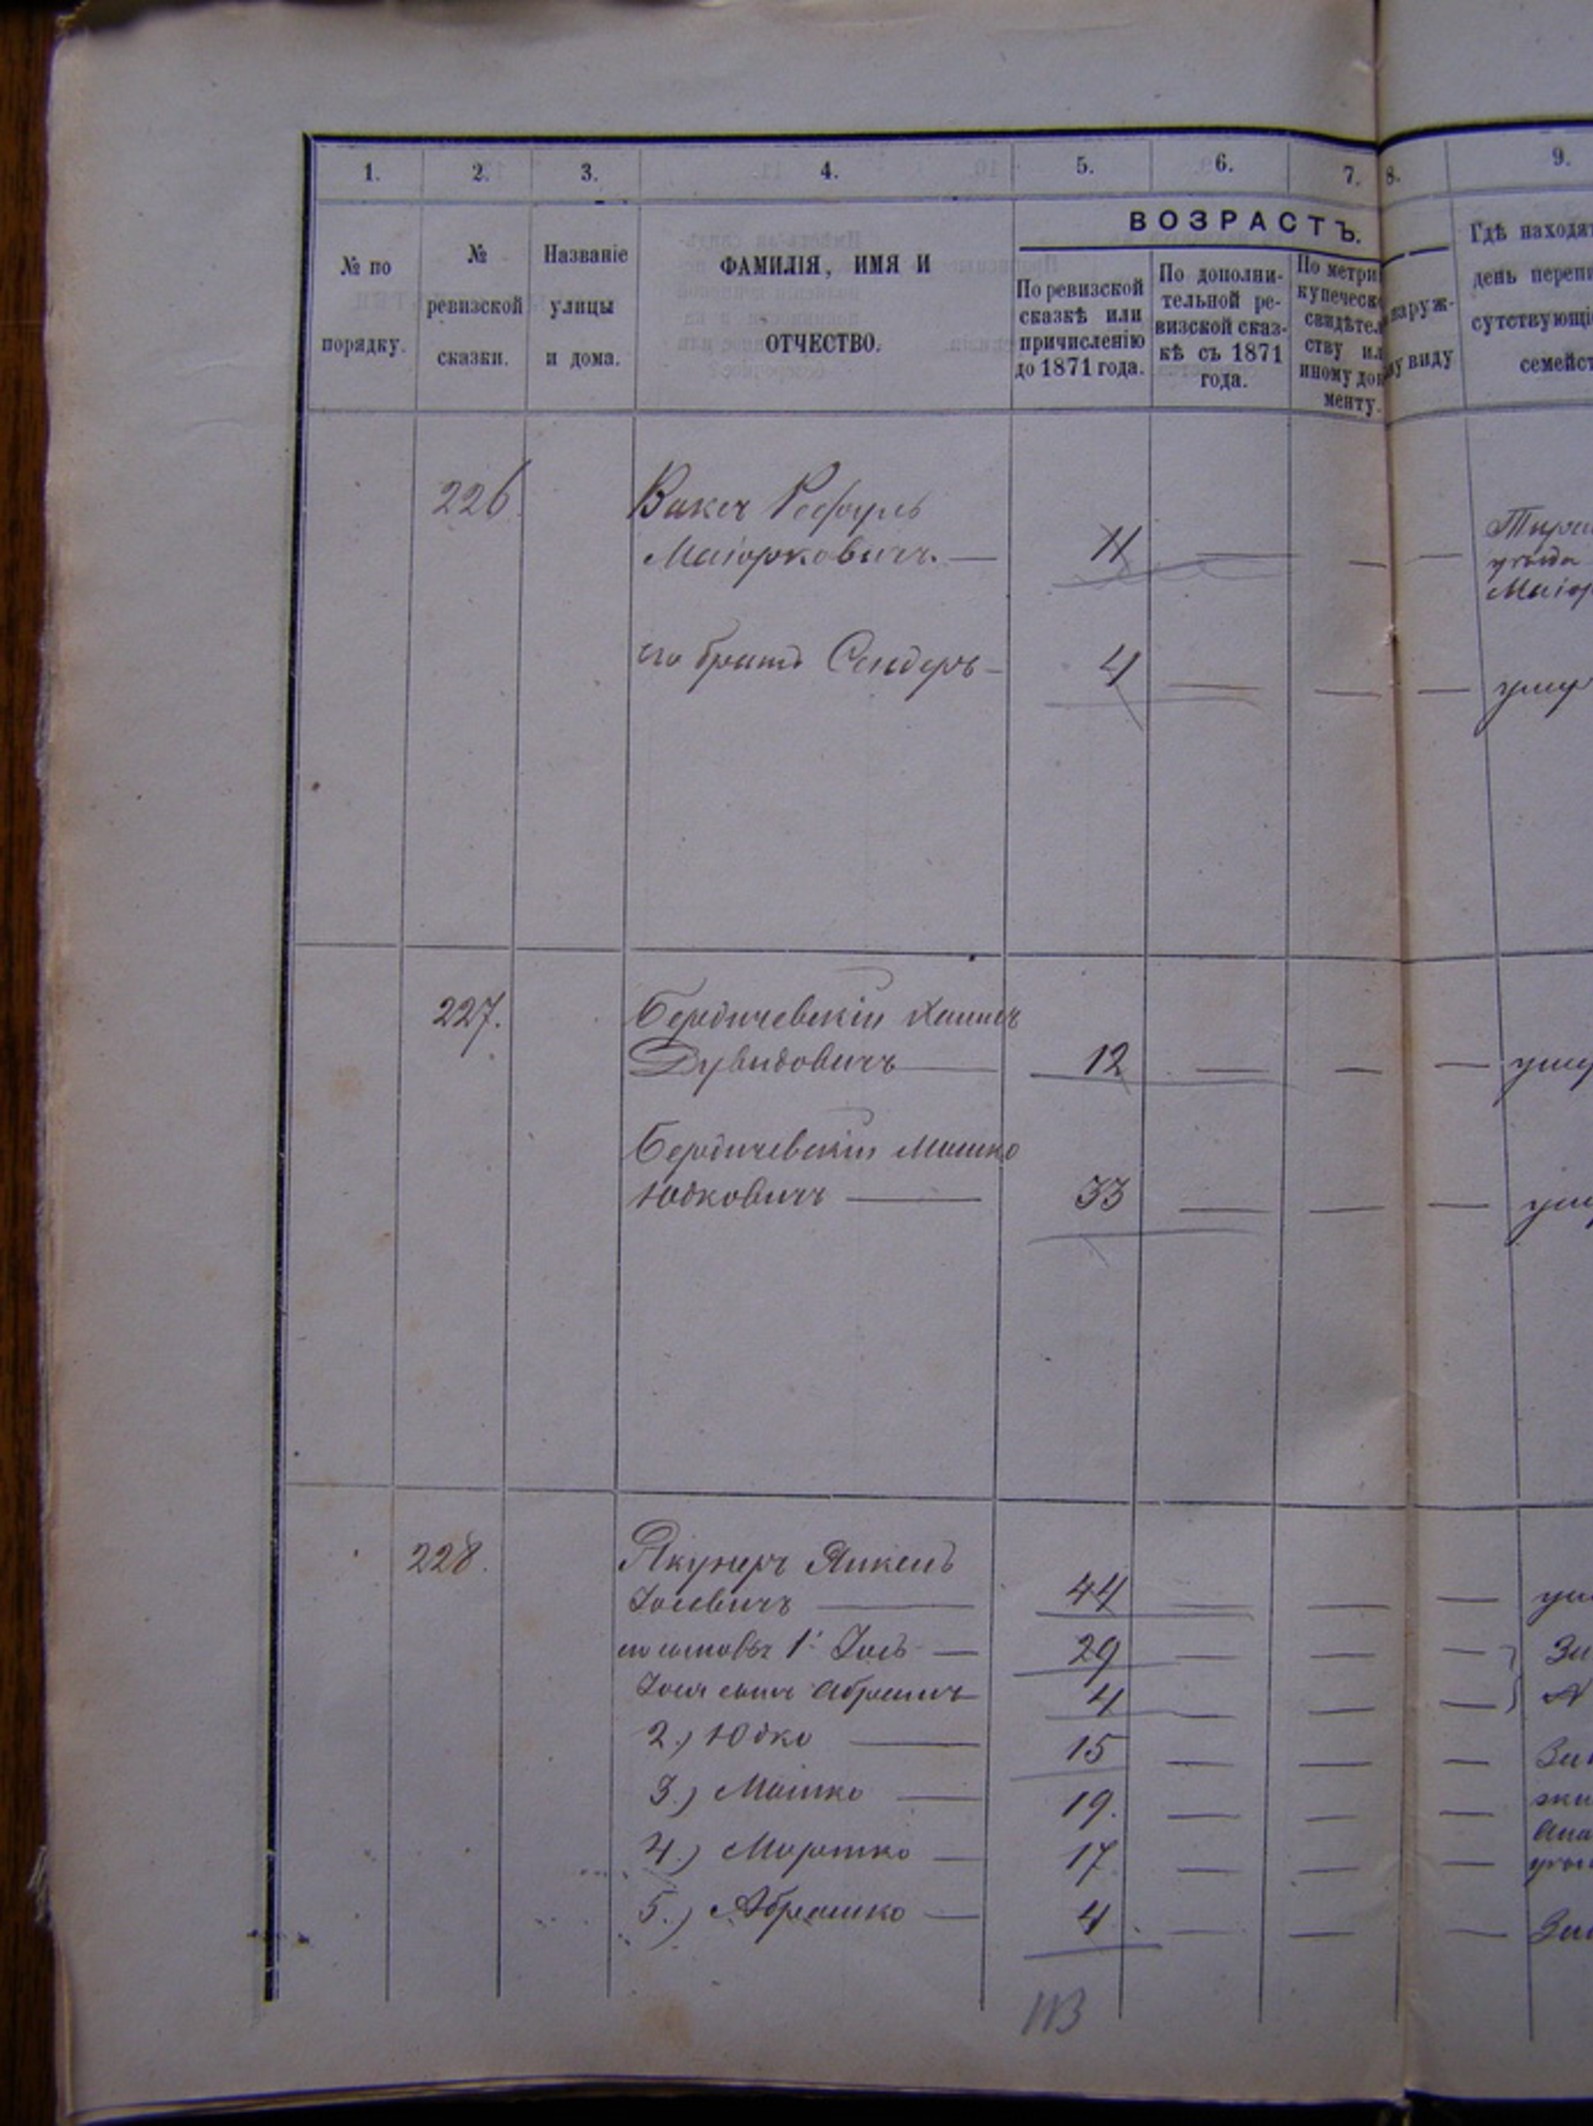 1. 2. 3. 4. 5. 6. 7. 8. 9.
№ по порядку.
№ ревизской сказки.
Названіе улицы и дома.
ФАМИЛІЯ, ИМЯ И ОТЧЕСТВО.
ВОЗРАСТЪ.
По ревизской
сказкѣ или
причисленію
до 1871 года.
По дополни-
тельной ре-
визской сказ-
кѣ съ 1871
года.
По метри
купеческ
свидѣтел
ству ил
иному док
менту.
наруж-
му виду
Гдѣ находят
день переп
сутствующі
семейст
226.
Маіорковичъ. — 11 — — —
его братъ Сендеръ — 4 — — — умер
227. Бердичевскій Хаимъ
Дувидовичъ — 12 — — — умер
Бердичевскій Мошко
Юдковичъ — 33 — — —
228. Янкель
Іосевичъ — 44 — — —
1 Іось — 29 — — —
Іося сынъ Абрамъ — 4 — — —
2.) Юдко — 15 — — —
3.) Мошко — 19. — — —
4.) Мортко — 17 — — —
5.) Абрашко — 4 — — —